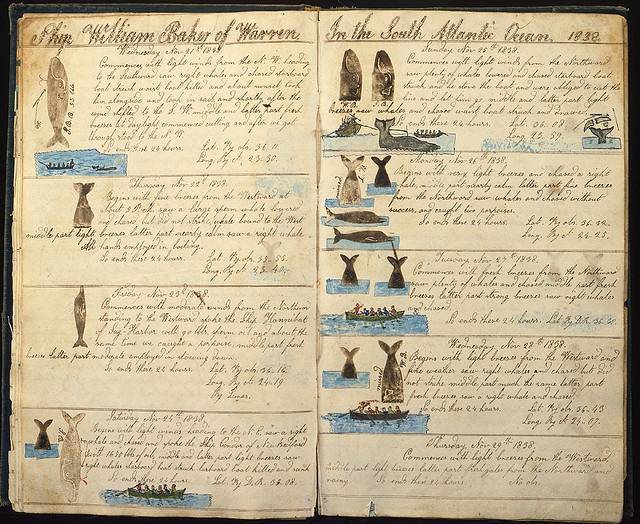 Ship William Baker of Warren,
Wednesday Nov. 21st 1838.
Commences with light winds from the N. W. heading
to the Southward saw right whales and chased starboard
boat struck waist boat killed and about sunset took
him alongside and took in sail and shortly after the
wind shifted to the S. W. middle and latter part fresh
breezes at daylight commenced cutting and after we got
through stood to the N. W.
So ends these 24 hours. Lat. By obs. 36.11
Long. By ch. 23.30.
Thursday Nov. 22d 1838.
Begins with fine breezes from the Westward at
about 3 P.M. saw a large sperm whale lowered
and chased but did not strike whale bound to the West
middle part light breezes latter part nearly calm saw a right whale
All hands employed in boiling.
So ends these 24 hours. Lat. By obs. 35.55.
Long. By ch. 23.40.
Friday Nov. 23d 1838.
Commences with moderate winds from the Northward
standing to the Westward spoke the Ship Hannibal
of Sag-Harbor with 60 bbls. sperm oil and about the
same time we caught a porpoise, middle part fresh
breezes latter part moderate employed in stowing down.
So ends these 24 hours. Lat. By obs. 36.16.
Long. By ch. 24.19
By Lunar.
Saturday Nov. 24th 1838.
Begins with light winds heading to the N. E. saw a right
whale and chased and spoke the Ship Condor of New Bedford
with 1650 bbls of oil, middle and latter part light breezes saw
right whales starboard boat struck larboard boat killed and sunk
So ends these 24 hours. Lat. By D. R. 36.08.
In the South Atlantic Ocean. 1838.
Sunday Nov. 25th 1838.
Commences with light winds from the Northward
saw plenty of whales lowered and chased starboard boat
struck and he stove the boat and were obliged to cut the
line and let him go, middle and latter part light
breezes saw whales and chased waist boat struck and drawed.
So ends these 24 hours. Lat. By obs. 36.18
Long. 23.59.
Monday Nov. 26th 1838.
Begins with very light breezes and chased a right
whale, middle part nearly calm latter part fine breezes
from the Northward saw whales and chased without
success, and caught two porpoises.
So ends these 24 hours. Lat. By obs. 36.32.
Long. By ch. 24.25.
Tuesday Nov. 27th 1838.
Commences with fresh breezes from the Northward
saw plenty of whales and chased middle part fresh
breezes latter part strong breezes saw right whales
and chased.
So ends these 24 hours. Lat. By D.R. 36.50
Wednesday Nov. 28th 1838.
Begins with light breezes from the Westward and
fine weather saw right whales and chased but did
not strike, middle part much the same latter part
fresh breezes saw a right whale and chased.
So ends these 24 hours. Lat. By obs. 36.43
Long. By ch. 24.07.
Thursday Nov. 29th 1838.
Commences with light breezes from the Westward,
middle part light breezes latter part fresh gales from the Northward and
rainy. So ends these 24 hours. No obs.